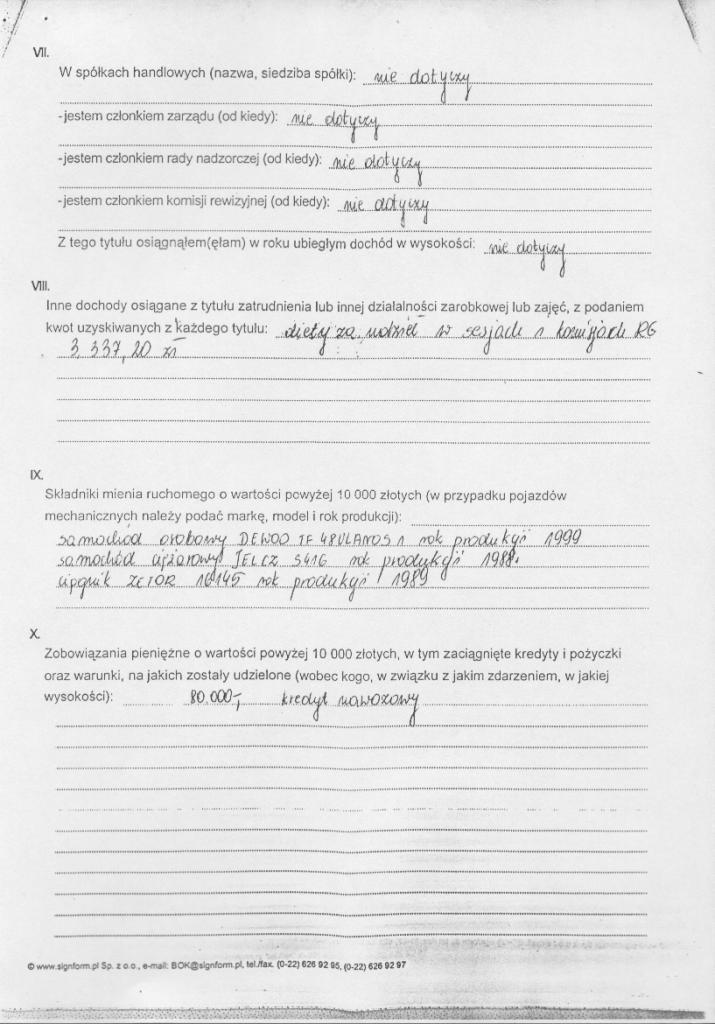 VII.
W spółkach handlowych (nazwa, siedziba spółki): nie dotyczy
-jestem członkiem zarządu (od kiedy): nie dotyczy
-jestem członkiem rady nadzorczej (od kiedy): nie dotyczy
-jestem członkiem komisji rewizyjnej (od kiedy): nie dotyczy
Z tego tytułu osiągnąłem(ęłam) w roku ubiegłym dochód w wysokości: nie dotyczy
VIII.
Inne dochody osiągane z tytułu zatrudnienia lub innej działalności zarobkowej lub zajęć, z podaniem
kwot uzyskiwanych z każdego tytułu: diety za udział w sesjach i komisjach RG
3.337,20 zł
IX.
Składniki mienia ruchomego o wartości powyżej 10 000 złotych (w przypadku pojazdów
mechanicznych należy podać markę, model i rok produkcji):
samochód osobowy DEWOO TF 48VLANOS 1 rok produkcji 1999
samochód ciężarowy JELCZ S416 rok produkcji 1988.
ciągnik ZETOR 16145 rok produkcji 1989
X.
Zobowiązania pieniężne o wartości powyżej 10 000 złotych, w tym zaciągnięte kredyty i pożyczki
oraz warunki, na jakich zostały udzielone (wobec kogo, w związku z jakim zdarzeniem, w jakiej
wysokości): 80.000,- kredyt nawozowy
© www.signform.pl Sp. z o.o., e-mail: BOK@signform.pl, tel./fax. (0-22) 626 92 95, (0-22) 626 92 97